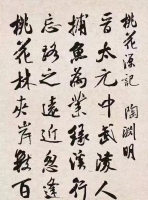 桃花源記 陶淵明
晉太元中武陵人
捕魚為業緣溪行
忘路之遠近忽逢
桃花林夾岸數百